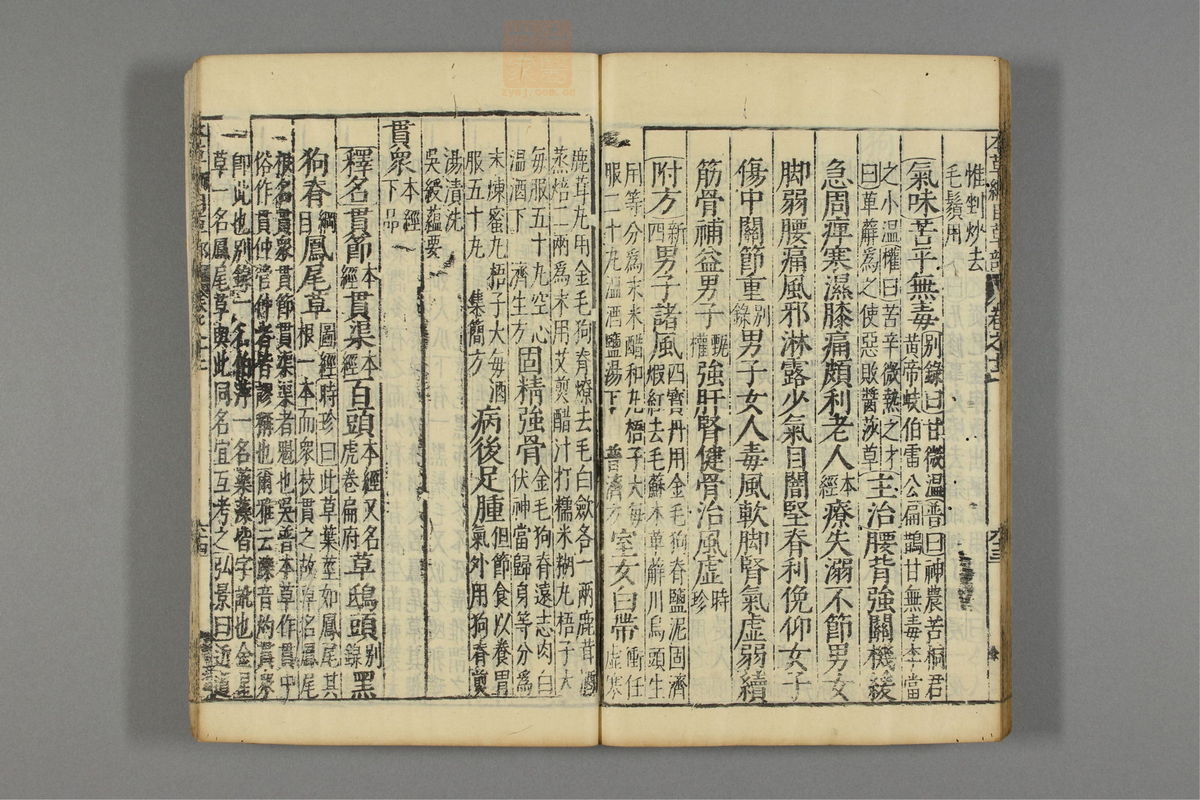 本草綱目草部
惟剉炒去
毛鬚用
氣味苦平無毒別錄曰甘微溫普曰神農苦桐君
黃帝岐伯雷公扁鵲甘無毒李當
之小溫權曰苦辛微熱之才
曰萆薢為之使惡敗醬莎草主治腰背強關機緩
急周痺寒濕膝痛頗利老人本經療失溺不節男女
脚弱腰痛風邪淋露少氣目闇堅脊利俛仰女子
傷中關節重別錄男子女人毒風軟脚腎氣虛弱續
筋骨補益男子甄權強肝腎健骨治風虛時珍
附方新四男子諸風四寶丹用金毛狗脊鹽泥固濟
煆紅去毛蘇木萆薢川烏頭生
用等分為末米醋和丸梧子大每
服二十丸溫酒鹽湯下 普濟方室女白帶虛寒
鹿茸丸用金毛狗脊燎去毛白斂各一兩鹿茸酒
蒸焙二兩為末用艾煎醋汁打糯米糊丸梧子大
每服五十丸空心
溫酒下 濟生方固精強骨金毛狗脊遠志肉白
伏神當歸身等分為
末煉蜜丸梧子大每酒
服五十丸 集簡方病後足腫但節食以養胃
氣外用狗脊煎
湯漬洗
吳綬蘊要
貫眾本經下品
釋名貫節本經貫渠本經百頭本經又名
虎卷扁府草鴟頭別錄黑
狗脊綱目鳳尾草圖經時珍曰此草葉莖如鳳尾其
根一本而眾枝貫之故草名鳳尾
根名貫眾貫節貫渠渠者魁也吳普本草作貫中
俗作貫仲管仲者皆謬稱也爾雅云濼音灼貫眾
即此也別錄一名伯萍一名藥藻皆字訛也金星
草一名鳳尾草與此同名宜互考之弘景曰近道